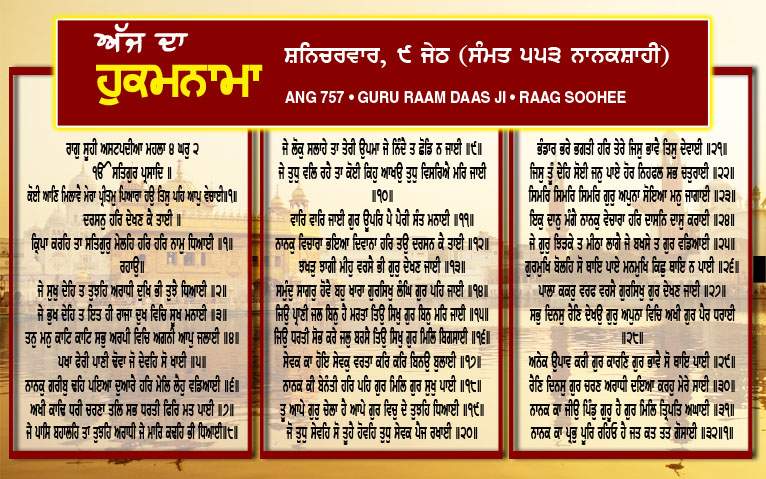 ਅੱਜ ਦਾ
ਹੁਕਮਨਾਮਾ
ਸ਼ਨਿਚਰਵਾਰ, ੯ ਜੇਠ (ਸੰਮਤ ੫੫੩ ਨਾਨਕਸ਼ਾਹੀ)
ANG 757 • GURU RAAM DAAS JI • RAAG SOOHEE
ਰਾਗੁ ਸੂਹੀ ਅਸਟਪਦੀਆ ਮਹਲਾ ੪ ਘਰੁ ੨
ੴ ਸਤਿਗੁਰ ਪ੍ਰਸਾਦਿ ॥
ਕੋਈ ਆਣਿ ਮਿਲਾਵੈ ਮੇਰਾ ਪ੍ਰੀਤਮੁ ਪਿਆਰਾ ਹਉ ਤਿਸੁ ਪਹਿ ਆਪੁ ਵੇਚਾਈ॥੧॥
ਦਰਸਨੁ ਹਰਿ ਦੇਖਣ ਕੈ ਤਾਈ ॥
ਕ੍ਰਿਪਾ ਕਰਹਿ ਤਾ ਸਤਿਗੁਰੁ ਮੇਲਹਿ ਹਰਿ ਹਰਿ ਨਾਮੁ ਧਿਆਈ ॥੧॥
ਰਹਾਉ॥
ਜੇ ਸੁਖੁ ਦੇਹਿ ਤ ਤੁਝਹਿ ਅਰਾਧੀ ਦੁਖਿ ਭੀ ਤੁਝੈ ਧਿਆਈ ॥੨॥
ਜੇ ਭੁਖ ਦੇਹਿ ਤ ਇਤ ਹੀ ਰਾਜਾ ਦੁਖ ਵਿਚਿ ਸੂਖ ਮਨਾਈ ॥੩॥
ਤਨੁ ਮਨੁ ਕਾਟਿ ਕਾਟਿ ਸਭੁ ਅਰਪੀ ਵਿਚਿ ਅਗਨੀ ਆਪੁ ਜਲਾਈ ॥੪॥
ਪਖਾ ਫੇਰੀ ਪਾਣੀ ਢੋਵਾ ਜੋ ਦੇਵਹਿ ਸੋ ਖਾਈ ॥੫॥
ਨਾਨਕੁ ਗਰੀਬੁ ਢਹਿ ਪਇਆ ਦੁਆਰੈ ਹਰਿ ਮੇਲਿ ਲੈਹੁ ਵਡਿਆਈ ॥੬॥
ਅਖੀ ਕਾਢਿ ਧਰੀ ਚਰਣਾ ਤਲਿ ਸਭ ਧਰਤੀ ਫਿਰਿ ਮਤ ਪਾਈ ॥੭॥
ਜੇ ਪਾਸਿ ਬਹਾਲਹਿ ਤਾ ਤੁਝਹਿ ਅਰਾਧੀ ਜੇ ਮਾਰਿ ਕਢਹਿ ਭੀ ਧਿਆਈ॥੮॥
ਜੇ ਲੋਕੁ ਸਲਾਹੇ ਤਾ ਤੇਰੀ ਉਪਮਾ ਜੇ ਨਿੰਦੈ ਤ ਛੋਡਿ ਨ ਜਾਈ ॥੯॥
ਜੇ ਤੁਧੁ ਵਲਿ ਰਹੈ ਤਾ ਕੋਈ ਕਿਹੁ ਆਖਉ ਤੁਧੁ ਵਿਸਰਿਐ ਮਰਿ ਜਾਈ
॥੧੦॥
ਵਾਰਿ ਵਾਰਿ ਜਾਈ ਗੁਰ ਊਪਰਿ ਪੈ ਪੈਰੀ ਸੰਤ ਮਨਾਈ ॥੧੧॥
ਨਾਨਕੁ ਵਿਚਾਰਾ ਭਇਆ ਦਿਵਾਨਾ ਹਰਿ ਤਉ ਦਰਸਨ ਕੈ ਤਾਈ ॥੧੨॥
ਝਖੜੁ ਝਾਗੀ ਮੀਹੁ ਵਰਸੈ ਭੀ ਗੁਰੁ ਦੇਖਣ ਜਾਈ ॥੧੩॥
ਸਮੁੰਦੁ ਸਾਗਰੁ ਹੋਵੈ ਬਹੁ ਖਾਰਾ ਗੁਰਸਿਖੁ ਲੰਘਿ ਗੁਰ ਪਹਿ ਜਾਈ ॥੧੪॥
ਜਿਉ ਪ੍ਰਾਣੀ ਜਲ ਬਿਨੁ ਹੈ ਮਰਤਾ ਤਿਉ ਸਿਖੁ ਗੁਰ ਬਿਨੁ ਮਰਿ ਜਾਈ ॥੧੫॥
ਜਿਉ ਧਰਤੀ ਸੋਭ ਕਰੇ ਜਲੁ ਬਰਸੈ ਤਿਉ ਸਿਖੁ ਗੁਰ ਮਿਲਿ ਬਿਗਸਾਈ ॥੧੬॥
ਸੇਵਕ ਕਾ ਹੋਇ ਸੇਵਕੁ ਵਰਤਾ ਕਰਿ ਕਰਿ ਬਿਨਉ ਬੁਲਾਈ ॥੧੭॥
ਨਾਨਕ ਕੀ ਬੇਨੰਤੀ ਹਰਿ ਪਹਿ ਗੁਰ ਮਿਲਿ ਗੁਰ ਸੁਖੁ ਪਾਈ ॥੧੮॥
ਤੂ ਆਪੇ ਗੁਰੁ ਚੇਲਾ ਹੈ ਆਪੇ ਗੁਰ ਵਿਚੁ ਦੇ ਤੁਝਹਿ ਧਿਆਈ ॥੧੯॥
ਜੋ ਤੁਧੁ ਸੇਵਹਿ ਸੋ ਤੂਹੈ ਹੋਵਹਿ ਤੁਧੁ ਸੇਵਕ ਪੈਜ ਰਖਾਈ ॥੨੦॥
ਭੰਡਾਰ ਭਰੇ ਭਗਤੀ ਹਰਿ ਤੇਰੇ ਜਿਸੁ ਭਾਵੈ ਤਿਸੁ ਦੇਵਾਈ ॥੨੧॥
ਜਿਸੁ ਤੂੰ ਦੇਹਿ ਸੋਈ ਜਨੁ ਪਾਏ ਹੋਰ ਨਿਹਫਲ ਸਭ ਚਤੁਰਾਈ ॥੨੨॥
ਸਿਮਰਿ ਸਿਮਰਿ ਸਿਮਰਿ ਗੁਰੁ ਅਪੁਨਾ ਸੋਇਆ ਮਨੁ ਜਾਗਾਈ ॥੨੩॥
ਇਕੁ ਦਾਨੁ ਮੰਗੈ ਨਾਨਕੁ ਵੇਚਾਰਾ ਹਰਿ ਦਾਸਨਿ ਦਾਸੁ ਕਰਾਈ ॥੨੪॥
ਜੇ ਗੁਰੁ ਝਿੜਕੇ ਤ ਮੀਠਾ ਲਾਗੈ ਜੇ ਬਖਸੇ ਤ ਗੁਰ ਵਡਿਆਈ ॥੨੫॥
ਗੁਰਮੁਖਿ ਬੋਲਹਿ ਸੋ ਥਾਇ ਪਾਏ ਮਨਮੁਖਿ ਕਿਛੁ ਥਾਇ ਨ ਪਾਈ ॥੨੬॥
ਪਾਲਾ ਕਕਰੁ ਵਰਫ ਵਰਸੈ ਗੁਰਸਿਖੁ ਗੁਰ ਦੇਖਣ ਜਾਈ ॥੨੭॥
ਸਭੁ ਦਿਨਸੁ ਰੈਣਿ ਦੇਖਉ ਗੁਰੁ ਅਪੁਨਾ ਵਿਚਿ ਅਖੀ ਗੁਰ ਪੈਰ ਧਰਾਈ
॥੨੮॥
ਅਨੇਕ ਉਪਾਵ ਕਰੀ ਗੁਰ ਕਾਰਣਿ ਗੁਰ ਭਾਵੈ ਸੋ ਥਾਇ ਪਾਈ ॥੨੯॥
ਰੈਣਿ ਦਿਨਸੁ ਗੁਰ ਚਰਣ ਅਰਾਧੀ ਦਇਆ ਕਰਹੁ ਮੇਰੇ ਸਾਈ ॥੩੦॥
ਨਾਨਕ ਕਾ ਜੀਉ ਪਿੰਡੁ ਗੁਰੂ ਹੈ ਗੁਰ ਮਿਲਿ ਤ੍ਰਿਪਤਿ ਅਘਾਈ ॥੩੧॥
ਨਾਨਕ ਕਾ ਪ੍ਰਭੁ ਪੂਰਿ ਰਹਿਓ ਹੈ ਜਤ ਕਤ ਤਤ ਗੋਸਾਈ ॥੩੨॥੧॥